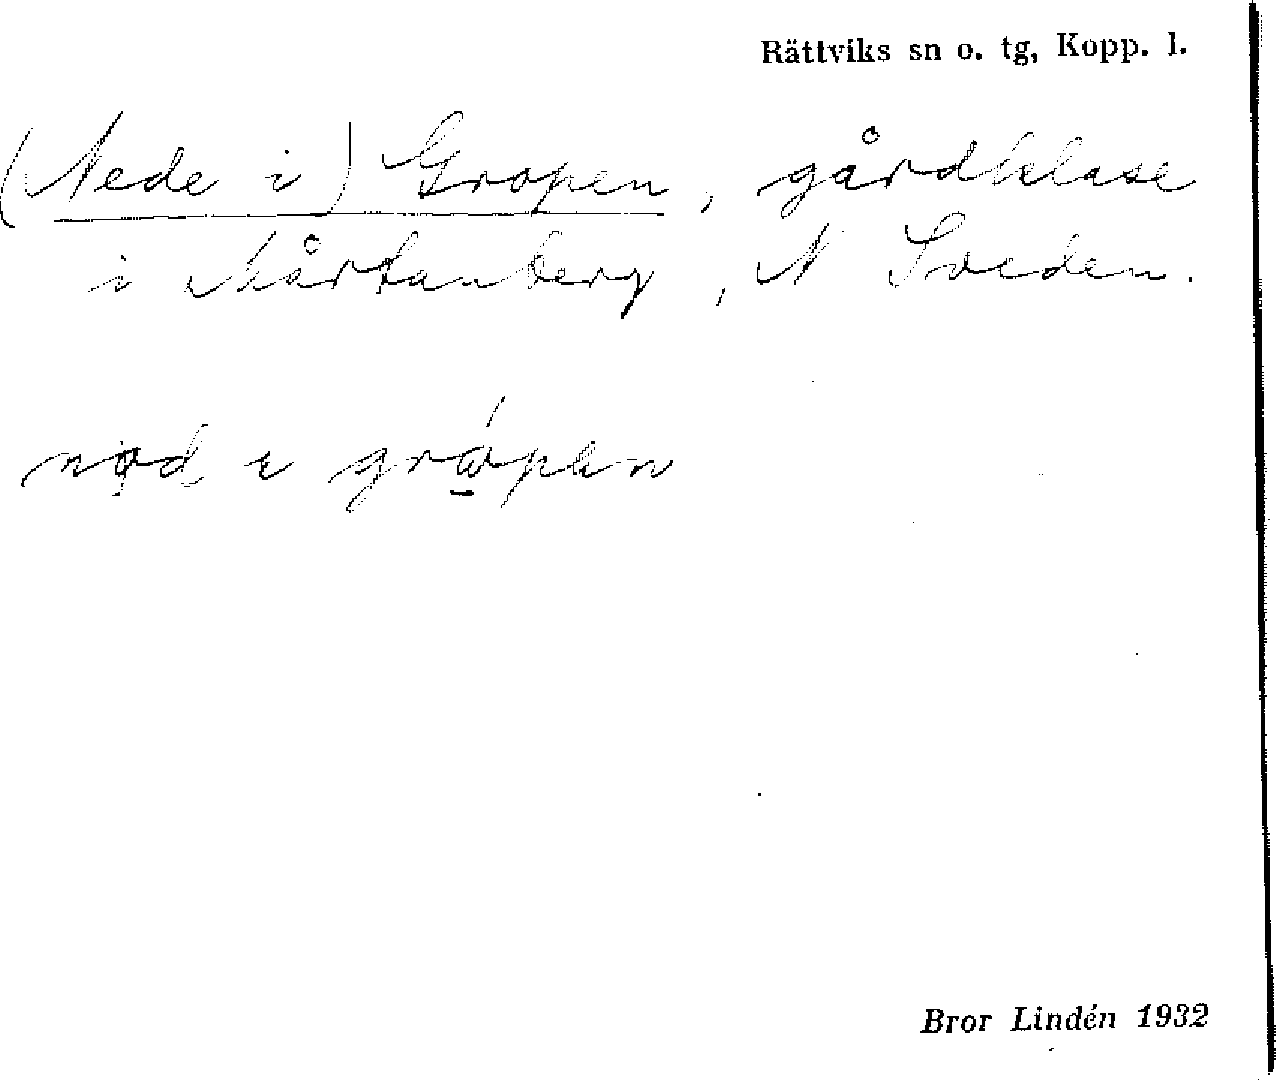 Rättviks sn o. tg, Kopp. l.
(Nede i) Gropen, gårdklase
i Mårtanberg, N Sveden.
nød e grópen
Bror Lindén 1932